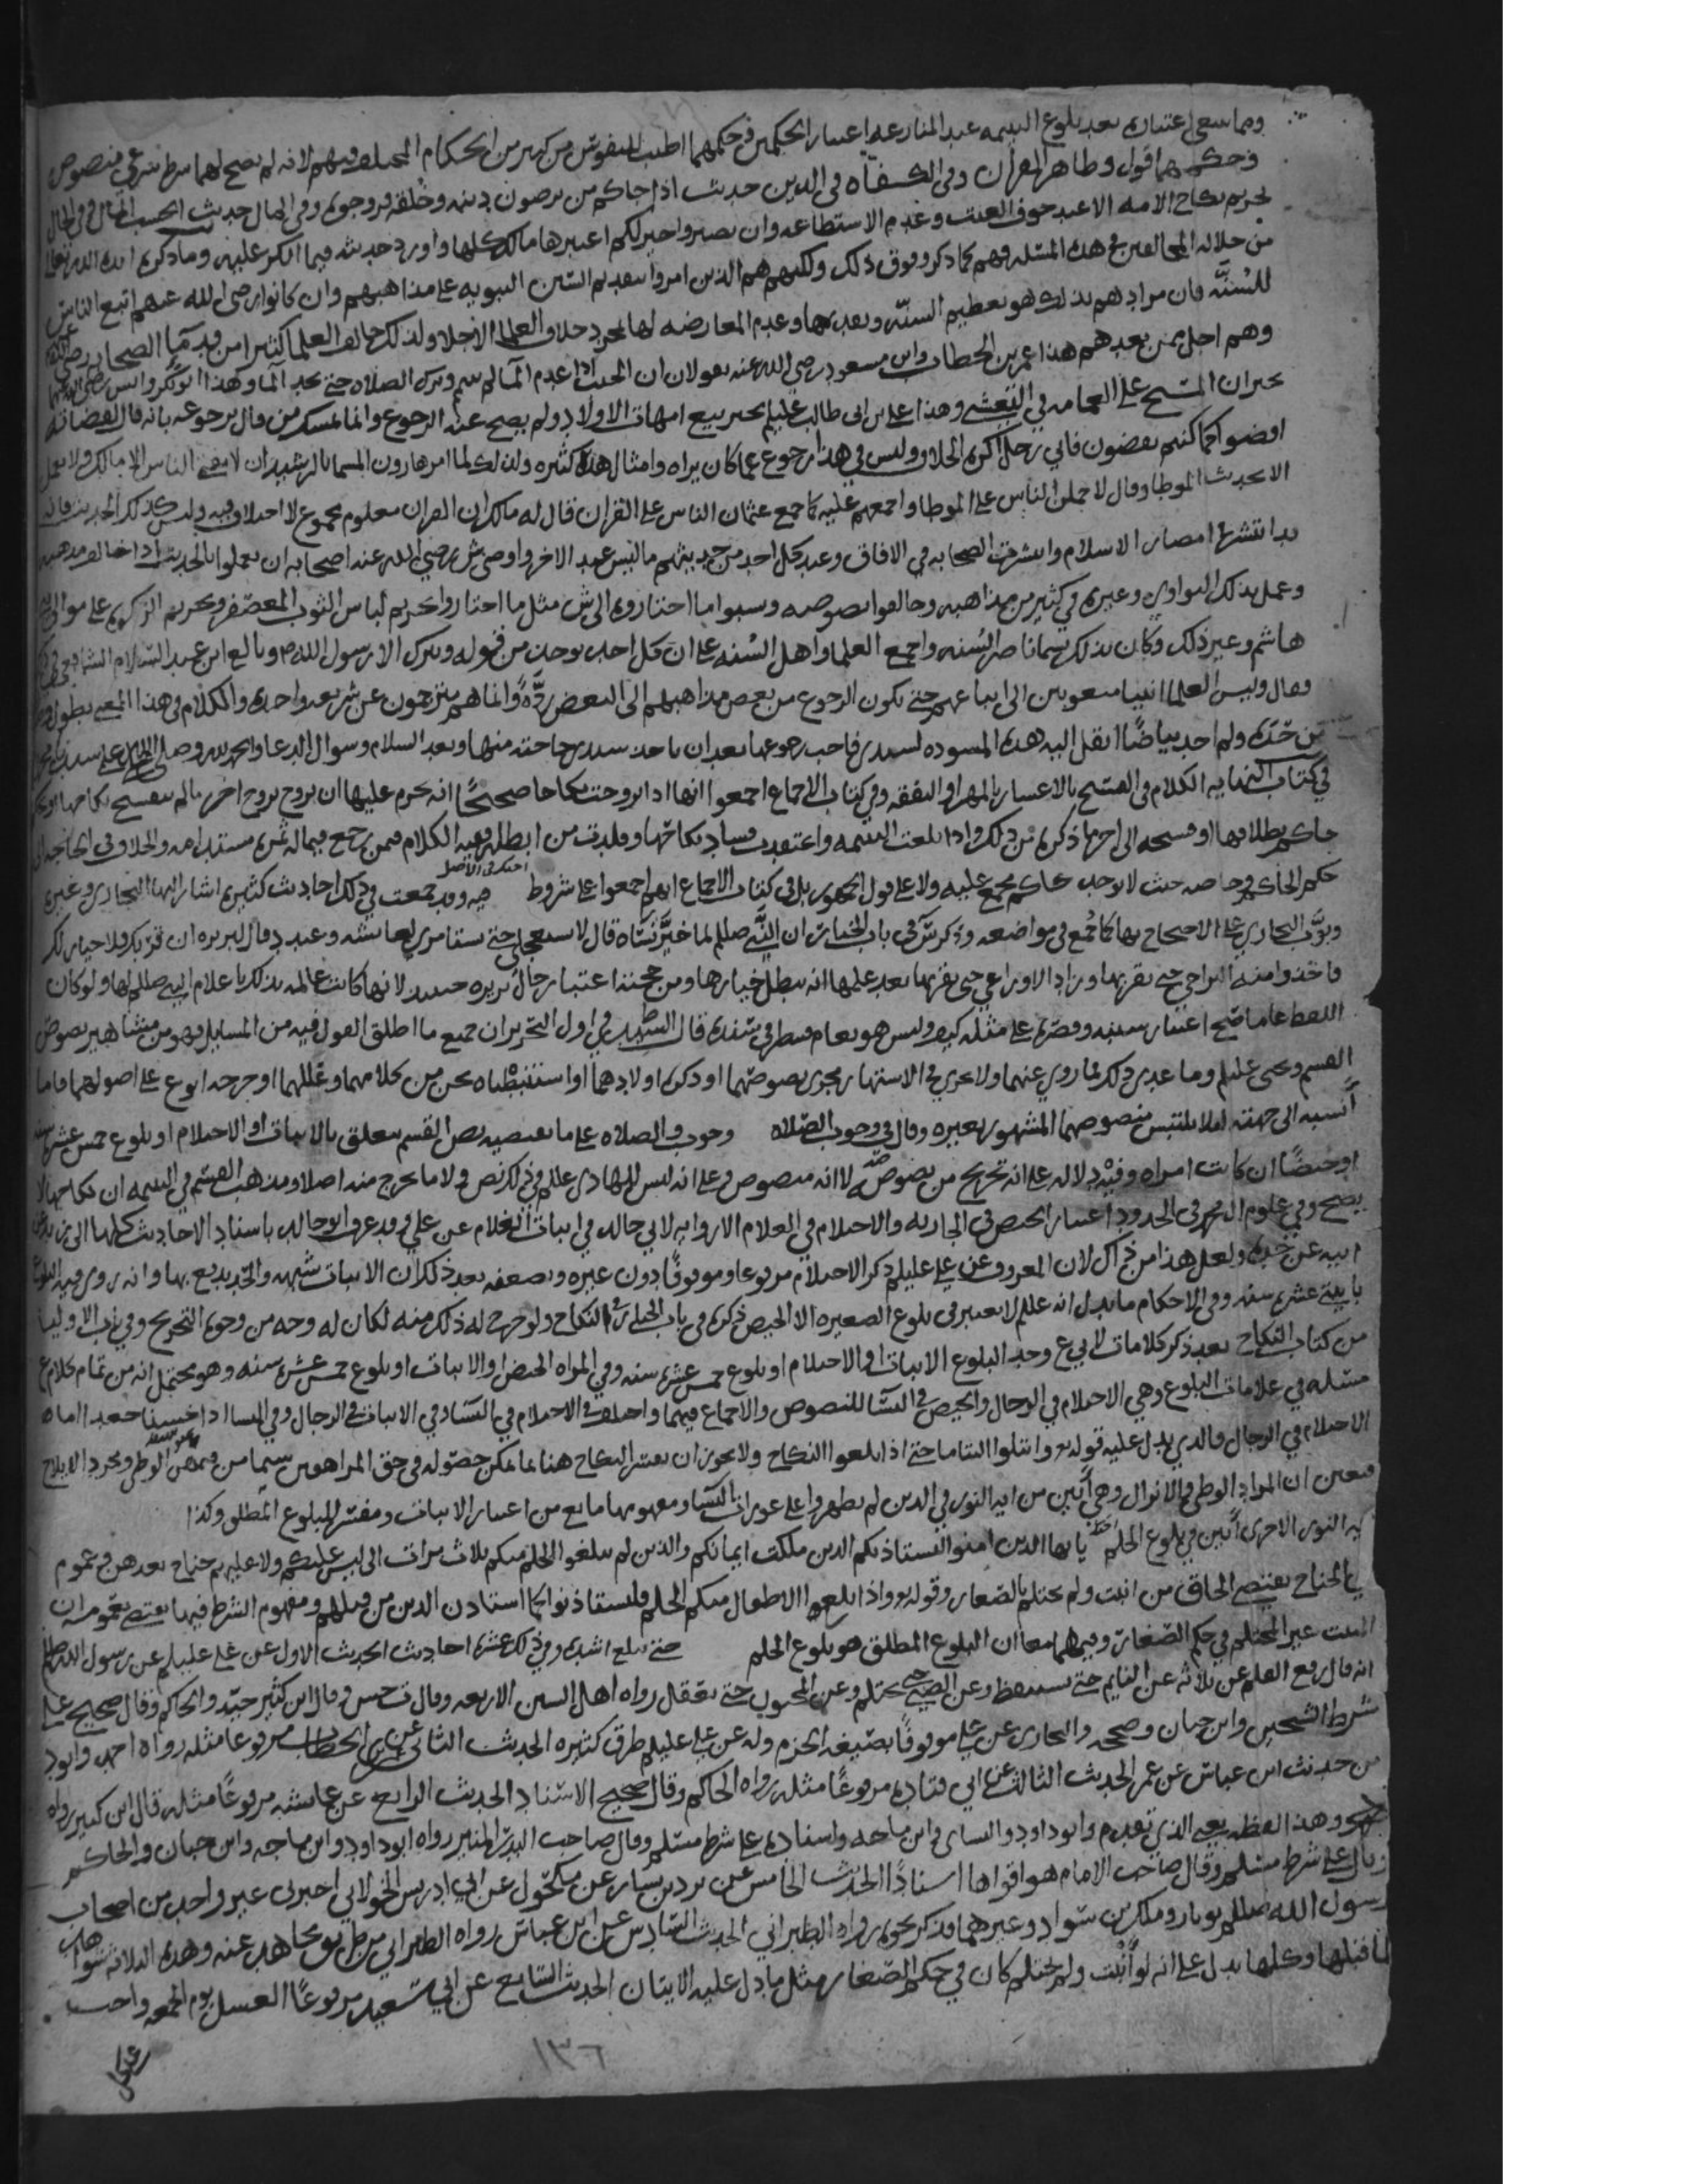 ومما ينبغي اعتباره بعد بلوغ اليتيمه عند المنازعه اعتبار الحكمين فحكمهما اطيب للنفوس من كثير من الحكام المختلف فيهم لانه لم يصح لهما شرط شرعي منصوص
وحكمهما قول وظاهر القران وفي الكفاه في الدين حديث اذا جاكم من ترضون دينه وخلقه فزوجوه وفي المال حديث الحسب المال وفي الحال
تحريم نكاح الامه الا عند خوف العنت وعدم الاستطاعه وان تصبروا خير لكم اعتبرها مالك كلها واورد حديثه فيما انكر عليه وما ذكره ايده الله تعالى
من جلاله المخالفين في هذه المسئله فهم كما ذكر وفوق ذلك ولكنهم هم الذين امروا بتقديم السنن النبويه على مذاهبهم وان كانوا رضي الله عنهم اتبع الناس
للسُنَّه فان مرادهم بذلك هو تعظيم السنه وتقديمها وعدم المعارضه لها بمجرد خلاف العلما الاجلا ولذلك خالف العلما كثيرا من قدما الصحابه رضي الله عنهم
وهم اجل ممن بعدهم هذا عمر بن الخطاب وابن مسعود رضي الله عنه يقولان ان الجنب اذا عدم الما لم يتيمم وترك الصلاه حتى يجد الما وهذا ابو بكر وانس رضي الله عنهما
يجيزان المسح على العمامه وهذا علي بن ابي طالب عليلم يجيز بيع امهات الاولاد ولم يصح عنه الرجوع وانما تمسك من قال برجوعه بانه قال لقضاته
اقضوا كما كنتم تقضون فاني رجل اكره الخلاف وليس في هذا رجوع عما كان يراه وامثال هذا كثيره ولذلك لما امر هارون المسما بالرشيد ان لا يفتي الناس الا مالك ولا يعمل
الا بحديث الموطا وقال لاحملن الناس على الموطا واجمعهم عليه كما جمع عثمان الناس على القران قال له مالك ان القران معلوم مجموع لا اختلاف فيه وليس كذلك الحديث فانه
قد انتشرت امصار الاسلام وانتشرت الصحابه في الافاق وعند كل احد من حديثهم ما ليس عند الاخر واوصى ش رضي الله عنه اصحابه ان يعملوا بالحديث اذا خالف مذهبه
وعمل بذلك النواوي وغيره في كثير من مذاهبه وخالفوا نصوصه ونسبوا ما اختاروه الى ش مثل ما اختاروا تحريم لباس الثوب المعصفر وتحريم الزكوه على موالي بني
هاشم وغير ذلك وكان بذلك يسما ناصر السنه واجمع العلما واهل السنه على ان كل احد يوخذ من قوله ويترك الا رسول الله ص وبالغ ابن عبد السلام الشافعي في ذلك
وقال وليس العلما انبيا متعوبين الى اتباعهم حتى يكون الرجوع من بعض مذاهبهم الى البعض رِدَّةً وانما هم مترجمون عن شريعه واحده والكلام في هذا المعنى يطول
عن حَدّه ولم اجد بياضًا انقل اليه هذه المسوده لسيدي فاحب رجوعها بعد ان ياخذ سيدي حاجته منها وبعد السلام وسوال الدعا والحمد لله وصلى الله على سيدنا محمد
في كتاب النهايه الكلام في الفسخ بالاعسار بالمهر او النفقه وفي كتاب الاجماع اجمعوا انها اذا تزوجت نكاحا صحيحًا انه يحرم عليها ان تزوج بزوج اخر ما لم ينفسخ نكاحها او يحكم
حاكم بطلاقها او فسخه الى اخر ما ذكره من ذلك واذا بلغت اليتيمه واعتقدت فساد نكاحها وقلدت من ابطله فعليه الكلام فيمن رجع فيما له ثمره مستدامه والخلاف في الحاجه الى
حكم الحاكم وخاصه حيث لا يوجد حاكم مجمع عليه ولا على قول الجمهور بل في كتاب الاجماع انهم اجمعوا على شروط فيه وقد جمعت في ذلك احاديث كثيره اشار اليها البخاري وغيره
وبوَّب البخاري على الاحتجاج بها كما جمع في مواضعه وذكر ش في باب الخيار ان النبي صللم لما خيَّر نساه قال لا تستعجلي حتى تستامري لعائشه وعنده قال لبريره ان قربك فلا خيار لك
فاخذوا منه التراخي حتى يقربها وزاد الاوزاعي حتى يقربها بعد علمها انه يبطل خيارها ومن حجتنا اعتبار حال بريره حينئذ لانها كانت عالمه بذلك باعلام النبي صللم لها ولو كان
اللفظ عاما صح اعتبار سببه وقصره على مثله كيف وليس هو بعام فينظر في سنده قال السيد ط في اول التحرير ان جميع ما اطلق القول فيه من المسايل فهو من مشاهير نصوص
القسم ويحيى عليلم وما عدى ذلك لما روي عنهما ولا يجري في الاشتهار مجرى نصوصهما او ذكره اولادهما او استنبطناه نحن من كلامهما وعللهما او خرجه ابو ع على اصولهما فانا
أنسبه الى جهته لئلا يلتبس منصوصهما المشهور بغيره وقال في وجوب الصلاه وجوب الصلاه على ما يقتضيه نص القسم يتعلق بالانبات او الاحتلام او بلوغ خمس عشره سنه
او حيضًا ان كانت امراه وفيه دلاله على انه تخريج من نصوصه لا انه منصوص وعلى انه ليس للهادي عللم في ذلك نص ولا ما يخرج منه اصلا ومذهب القسم في اليتيمه ان نكاحها لا
يصح وفي علوم ال محمد في الحدود اعتبار الحيض في الجاريه والاحتلام في الغلام الا روايه لابي خالد في انبات الغلام عن علي وقد عرف ابو خالد باسناد الاحاديث كلها الى زيد عن
ابيه عن جده ولعل هذا من ذاك لان المعروف عن علي عليلم ذكر الاحتلام مرفوعا وموقوفًا دون غيره ويضعفه بعد ذلك ان الانبات شبهه والحد يدفع بها وانه روى فيه البلوغ
باثنتي عشره سنه وفي الاحكام ما يدل انه عللم لا يعتبر في بلوغ الصغيره الا الحيض ذكره في باب الحيار في النكاح ولو خرج له ذلك منه لكان له وجه من وجوه التخريج وفي باب الاوليا
من كتاب النكاح بعد ذكر كلامات لابي ع وحد البلوغ الانبات او الاحتلام او بلوغ خمس عشره سنه وفي المراه الحيض او الانبات او بلوغ خمس عشره سنه وهو يحتمل انه من تمام كلام ع
مسئله في علامات البلوغ وهي الاحتلام في الرجال والحيض في النسا للنصوص والاجماع فيهما واختلف في الاحتلام في النسا وفي الانبات في الرجال وفي النسا
الاحتلام في الرجال فالذي يدل عليه قوله تع وابتلوا اليتاما حتى اذا بلغوا النكاح ولا يجوز ان يفسر النكاح هنا بما يمكن حصوله في حق المراهقين سيما من الوطي ومجرد الايلاج
فتعين ان المراد الوطي والانزال وهي أبين من ايه النور في الذين لم يظهروا على عورات النسا ومفهومها مانع من اعتبار الانبات ومفسر للبلوغ المطلق وكذا
ايه النور الاخرى أبين في بلوغ الحلم يا ايها الذين امنوا ليستاذنكم الذين ملكت ايمانكم والذين لم يبلغوا الحلم منكم ثلاث مرات الى ليس عليكم ولا عليهم جناح بعدهن فعموم
نفي الجناح يقتضي الحاق من انبت ولم يحتلم بالصغار وقوله تع واذا بلغ الاطفال منكم الحلم فليستاذنوا كما استاذن الذين من قبلهم ومفهوم الشرط فيها يقتضي بعمومه ان
المنبت غير المحتلم في حكم الصغار وفيهما معا ان البلوغ المطلق هو بلوغ الحلم حتى يبلغ اشده وفي ذلك عشره احاديث الحديث الاول عن علي عليلم عن رسول الله صللم
انه قال رفع القلم عن ثلاثه عن النايم حتى يستيقظ وعن الصبي حتى يحتلم وعن المجنون حتى يعقل رواه اهل السنن الاربعه وقال ت حسن وقال ابن كثير جيد والحاكم وقال صحيح على
شرط الشيخين وابن حبان وصححه والبخاري عن علي موقوفًا بصيغه الجزم وله عن علي عليلم طرق كثيره الحديث الثاني عن عمر بن الخطاب مرفوعا مثله رواه احمد وابو د
من حديث ابن عباس عن عمر الحديث الثالث عن ابي قتاده مرفوعًا مثله رواه الحاكم وقال صحيح الاسناد الحديث الرابع عن عائشه مرفوعًا مثله قال ابن كثير رواه
وهذا لفظه يعني الذي تقدم وابو داود والنساي وابن ماجه واسناده على شرط مسلم وقال صاحب البدر المنير رواه ابو داود وابن ماجه وابن حبان والحاكم
وقال على شرط مسلم وقال صاحب الامام هو اقواها اسنادًا الحديث الخامس عن برد بن يسار عن مكحول عن ابي ادريس الخولاني اخبرني غير واحد من اصحاب
رسول الله صللم ثوبان ومالك بن شواد وغيرهما فذكر نحوه رواه الطبراني الحديث السادس عن ابن عباس رواه الطبراني من طريق مجاهد عنه وهذه الثلاثه شواهد
لما قبلها وكلها يدل على انه لو أنبت ولم يحتلم كان في حكم الصغار مثل ما دل عليه الايتان الحديث السابع عن ابي سعيد مرفوعًا الغسل يوم الجمعه واجب
١٣٦